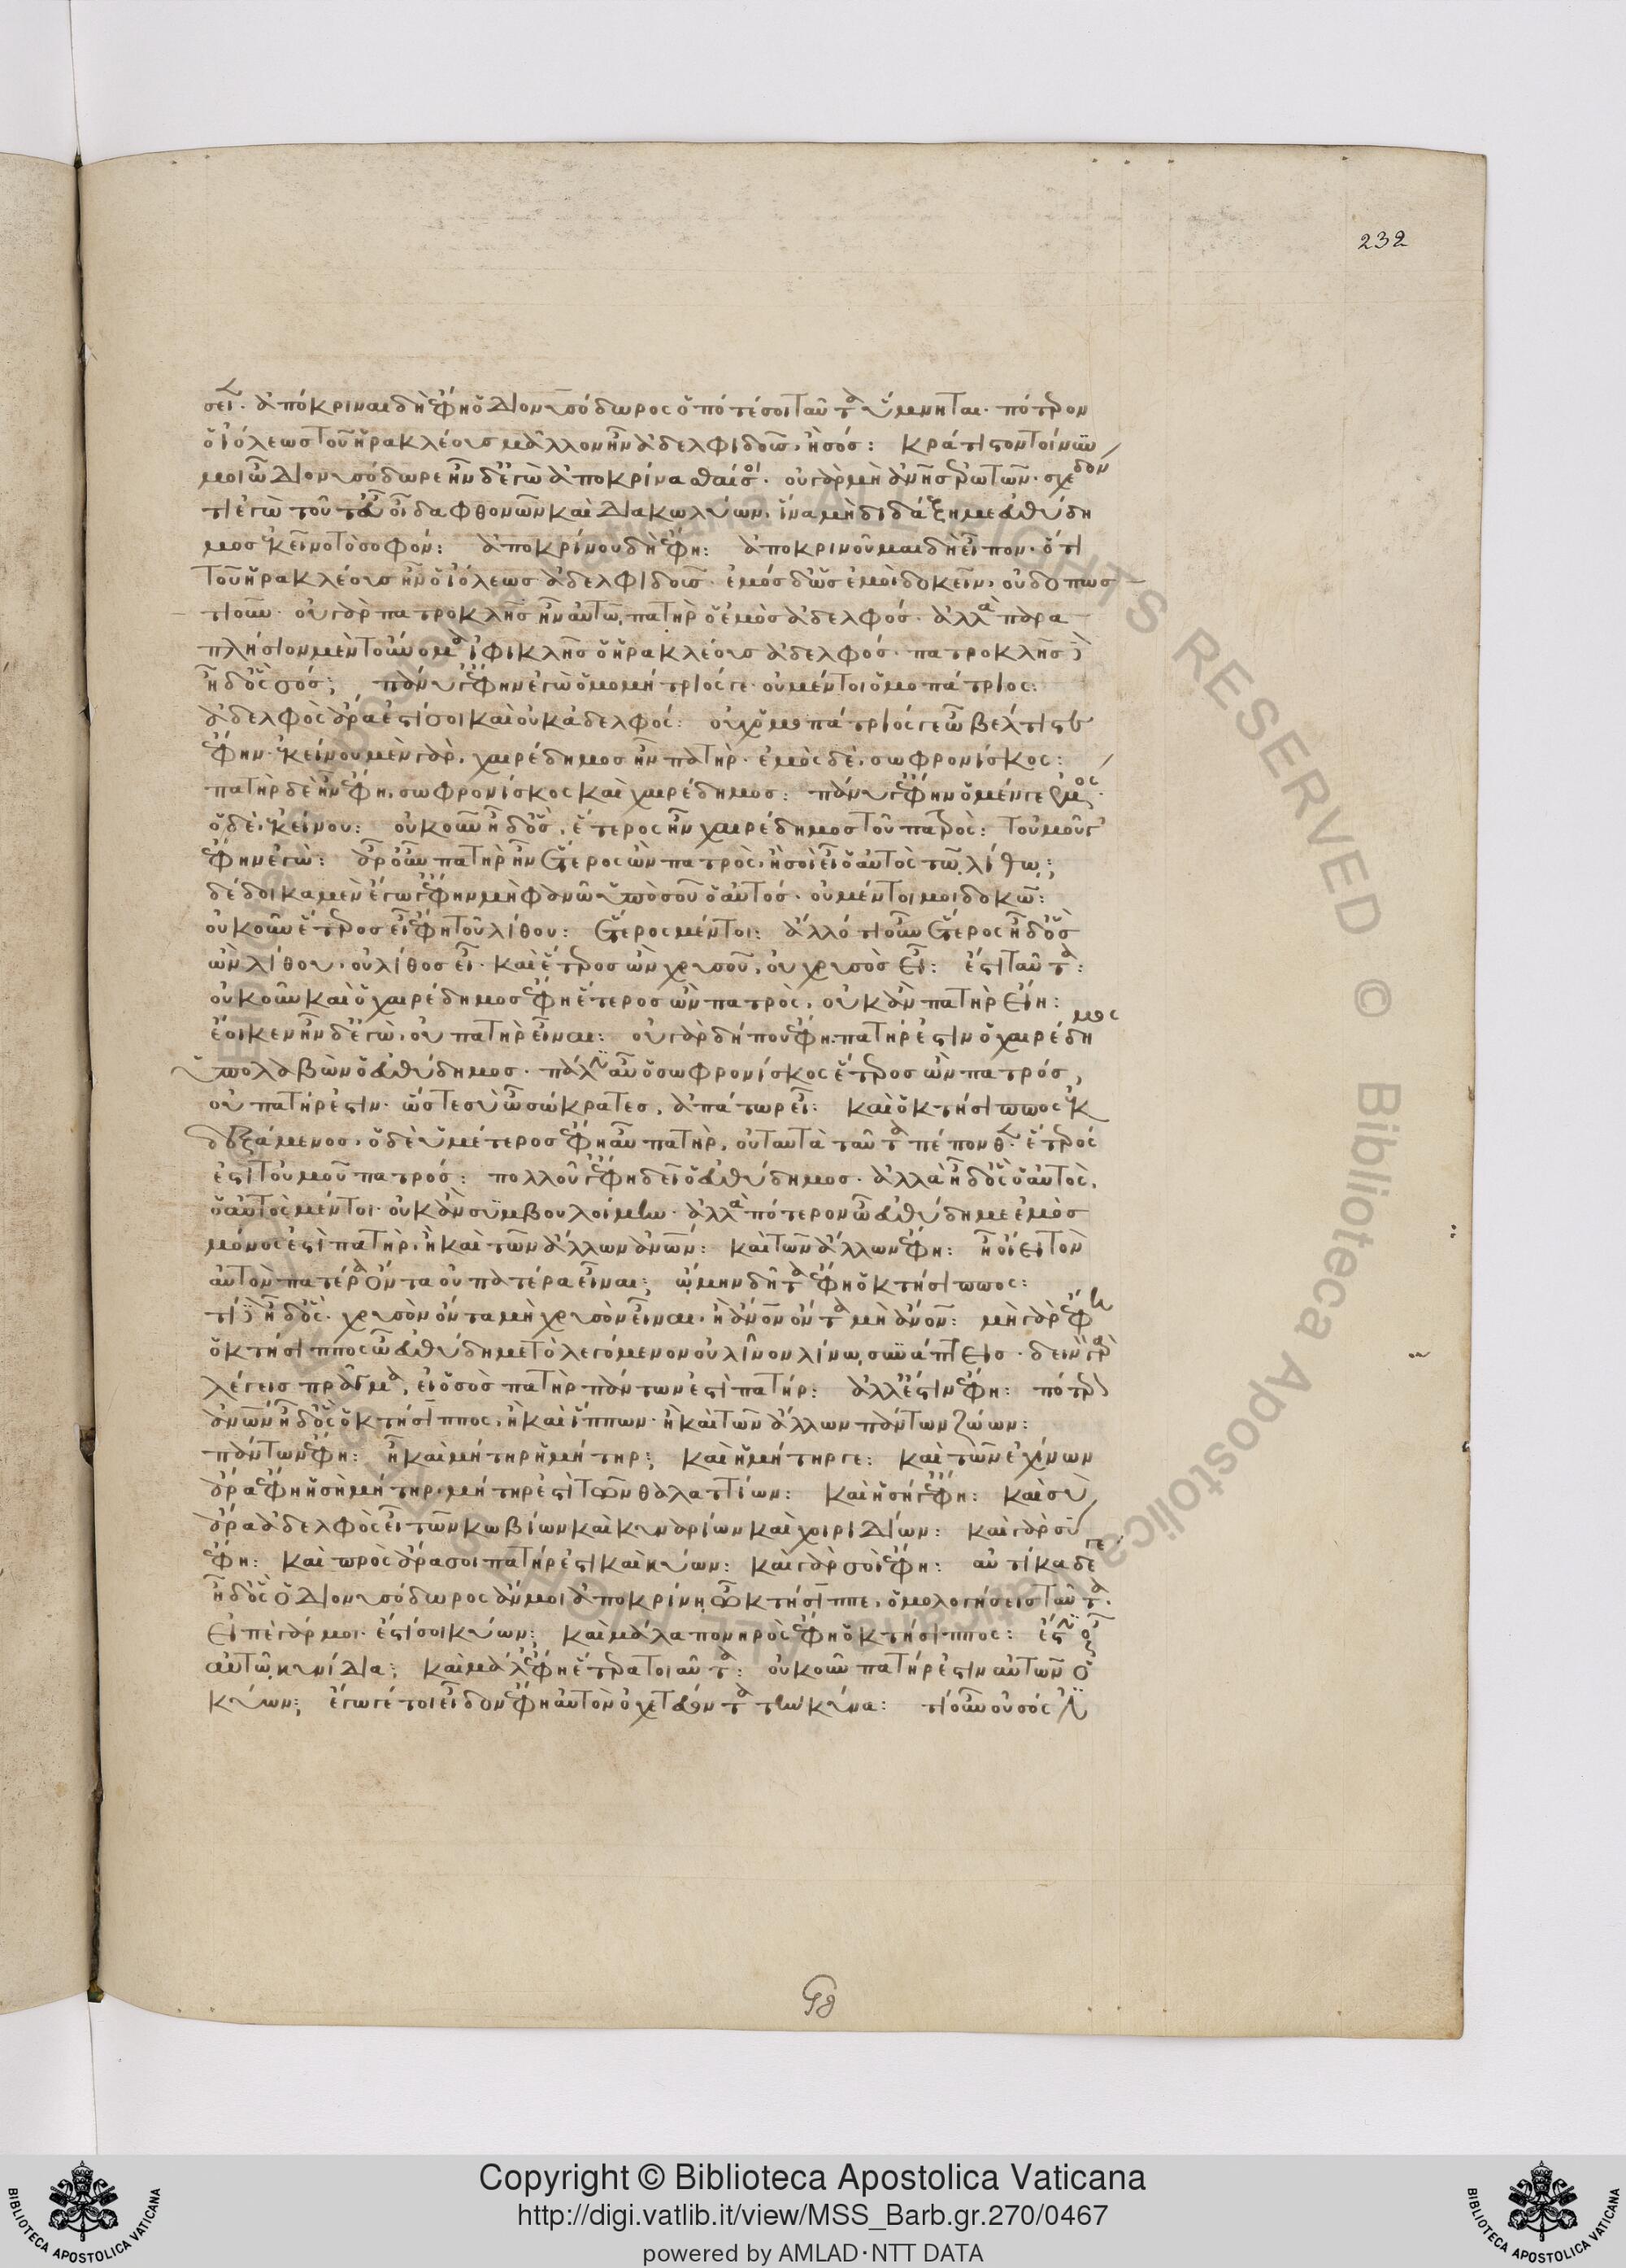 232
σει. ἀπόκριναι δὴ ἔφη ὁ Διονυσόδωρος ὁπότε σοι ταῦτα ὕμνηται. πότερον
ὁ ἰόλεως τοῦ ἡρακλέους μᾶλλον ἦν ἀδελφιδοῦς, ἢ σός: κράτιστον τοίνυν
μοι ὦ Διονυσόδωρε ἦν δ' ἐγὼ ἀποκρίνασθαί σοι. οὐ γὰρ μὴ ἀνῇς ἐρωτῶν. σχεδόν
τι ἐγὼ τοῦτο εὖ οἶδα φθονῶν καὶ Διακωλύων, ἵνα μὴ διδάξῃ με εὐθύδη
μος ἐκεῖνο τὸ σοφόν: ἀποκρίνου δὴ ἔφη: ἀποκρινοῦμαι δὴ εἶπον. ὅτι
τοῦ ἡρακλέους ἦν ὁ ἰόλεως ἀδελφιδοῦς. ἐμὸς δ' ὡς ἐμοὶ δοκεῖν, οὐδ' ὁπωσ
τιοῦν. οὐ γὰρ πατροκλῆς ἦν αὐτῷ πατὴρ ὁ ἐμὸς ἀδελφός. ἀλλὰ παρα
πλήσιον μὲν τοὔνομα ἰφικλῆς ὁ ἡρακλέους ἀδελφός. πατροκλῆς δὲ
ἦ δ' ὃς σός; πάνυ γ' ἔφην ἐγὼ ὁμομήτριός γε. οὐ μέντοι ὁμοπάτριος:
ἀδελφὸς ἄρα ἐστί σοι καὶ οὐκ ἀδελφός: οὐχ ὁμοπάτριός γε ὦ βέλτιστε
ἔφην. ἐκείνου μὲν γὰρ, χαιρέδημος ἦν πατὴρ. ἐμὸς δὲ, σωφρονίσκος:
πατὴρ δὲ ἦν ἔφη, σωφρονίσκος καὶ χαιρέδημος: πάνυ γ' ἔφην ὁ μέν γε ἐμός.
ὁ δὲ, ἐκείνου: οὐκοῦν ἦ δ' ὅς, ἕτερος ἦν χαιρέδημος τοῦ πατρὸς: τοὐμοῦ γ'
ἔφην ἐγὼ: ἆρ' οὖν πατὴρ ἦν ἕτερος ὢν πατρὸς, ἢ σὺ εἶ ὁ αὐτὸς τῷ λίθῳ;
δέδοικα μὲν ἔγωγ' ἔφην μὴ φανῶ ὑπὸ σοῦ ὁ αὐτός. οὐ μέντοι μοι δοκῶ:
οὐκοῦν ἕτερος εἶ ἔφη τοῦ λίθου: ἕτερος μέντοι: ἄλλό τι οὖν ἕτερος ἦ δ' ὃς
ὢν λίθου, οὐ λίθος εἶ. καὶ ἕτερος ὢν χρυσοῦ, οὐ χρυσὸς εἶ: ἔστι ταῦτα:
οὐκοῦν καὶ ὁ χαιρέδημος ἔφη ἕτερος ὢν πατρὸς, οὐκ ἂν πατὴρ εἴη:
ἔοικεν ἦν δ' ἐγὼ, οὐ πατὴρ εἶναι: οὐ γὰρ δήπου ἔφη. πατήρ ἐστιν ὁ χαιρέδημος
ὑπολαβὼν ὁ εὐθύδημος. πάλιν αὖ ὁ σωφρονίσκος ἕτερος ὢν πατρός,
οὐ πατήρ ἐστιν. ὥστε σὺ ὦ σώκρατες, ἀπάτωρ εἶ: καὶ ὁ κτήσιππος ἐκ
δεξάμενος. ὁ δὲ ὑμέτερος ἔφη αὖ πατὴρ, οὐ ταυτὰ ταῦτα πέπονθεν. ἕτερός
ἐστι τοὐμοῦ πατρός: πολλοῦ γ' ἔφη δεῖ ὁ εὐθύδημος. ἀλλὰ ἦ δ' ὃς ὁ αὐτὸς.
ὁ αὐτὸς μέντοι. οὐκ ἂν συμβουλοίμην. ἀλλὰ πότερον ὦ εὐθύδημε ἐμὸς
μόνος ἐστὶ πατὴρ, ἢ καὶ τῶν ἄλλων ἀνων: καὶ τῶν ἄλλων ἔφη: ἢ οἴει τὸν
αὐτὸν πατέρα ὄντα οὐ πατέρα εἶναι; ᾤμην δῆτα ἔφη ὁ κτήσιππος:
τί δὲ ἦ δ' ὃς. χρυσὸν ὄντα μὴ χρυσὸν εἶναι, ἢ ἀνον ὄντα μὴ ἀνον: μὴ γὰρ ἔφη
ὁ κτήσιππος ὦ εὐθύδημε τὸ λεγόμενον οὐ λίνον λίνῳ συνάπτεις. δεινὸν γὰρ
λέγεις πρᾶγμα, εἰ ὁ σὸς πατὴρ πάντων ἐστὶ πατήρ: ἀλλ' ἔστιν ἔφη: πότερον
ἀνων ἦ δ' ὃς ὁ κτήσιππος, ἢ καὶ ἵππων. ἢ καὶ τῶν ἄλλων πάντων ζώων:
πάντων ἔφη: ἦ καὶ μήτηρ ἡ μήτηρ; καὶ ἡ μήτηρ γε: καὶ τῶν ἐχίνων
ἄρα ἔφη ἡ σὴ μήτηρ. μήτηρ ἐστὶ τῶν θαλαττίων: καὶ ἡ σή γ' ἔφη: καὶ σὺ
ἄρα ἀδελφὸς εἶ τῶν κωβίων καὶ κυναρίων καὶ χοιριΔίων: καὶ γὰρ σὺ
ἔφη: καὶ πρὸς ἄρα σοι πατήρ ἐστι καὶ κύων: καὶ γὰρ σοὶ ἔφη: αὐτίκα δέ γε.
ἦ δ' ὃς ὁ Διονυσόδωρος ἄν μοι ἀποκρίνῃ ὦ κτήσιππε, ὁμολογήσεις ταῦτα.
εἰπὲ γάρ μοι. ἔστι σοι κύων; καὶ μάλα πονηρὸς ἔφη ὁ κτήσιππος: ἔστιν οὖν
αὐτῷ κυνίΔια; καὶ μάλ' ἔφη ἕτερα τοιαῦτα: οὐκοῦν πατήρ ἐστιν αὐτῶν ὁ
κύων; ἔγωγέ τοι εἶδον ἔφη αὐτὸν ὀχεύοντα τὴν κύνα: τί οὖν οὐ σός ἐστιν
Copyright © Biblioteca Apostolica Vaticana
http://digi.vatlib.it/view/MSS_Barb.gr.270/0467
powered by AMLAD·NTT DATA